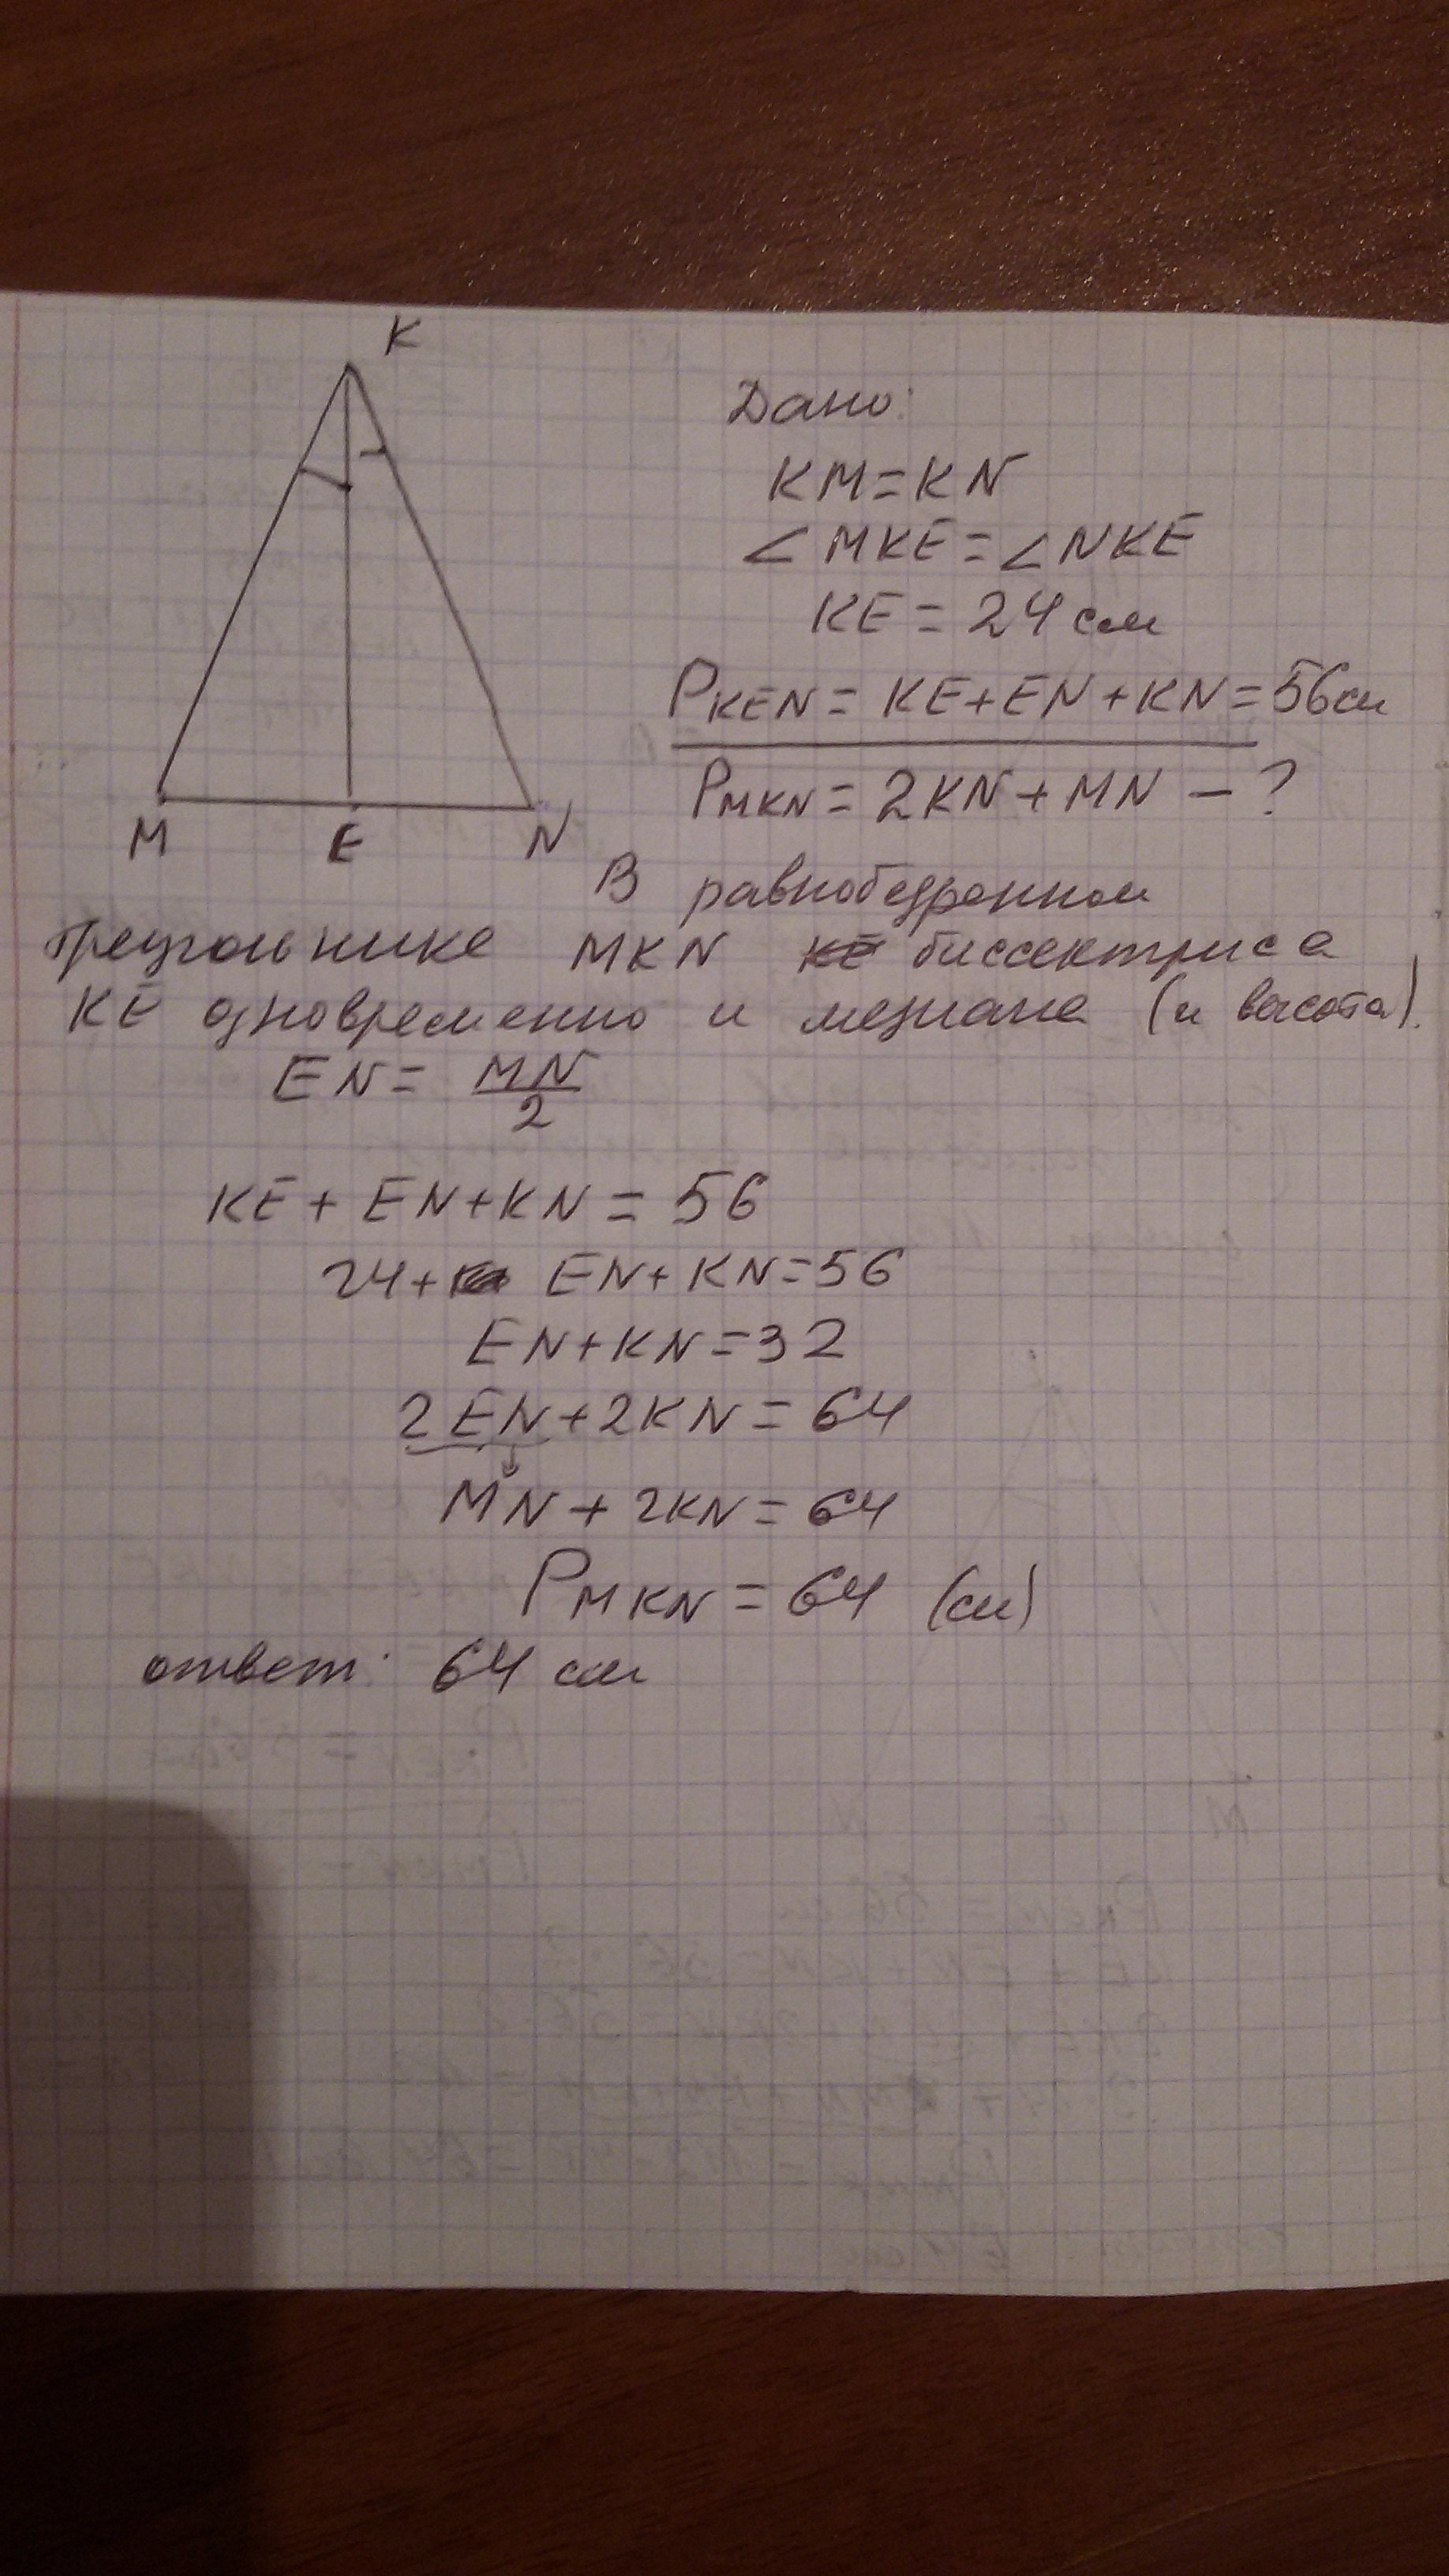 K
M E N
Дано:
KM=KN
∠MKE=∠NKE
KE=24 см
P_KEN = KE+EN+KN=56см
P_MKN=2KN+MN - ?
В равнобедренном
треугольнике MKN KE биссектриса
KE одновременно и медиана (и высота).
EN = MN/2
KE + EN+KN = 56
24+ EN+KN=56
EN+KN=32
2EN+2KN=64
MN + 2KN=64
P_MKN=64 (см)
ответ: 64 см